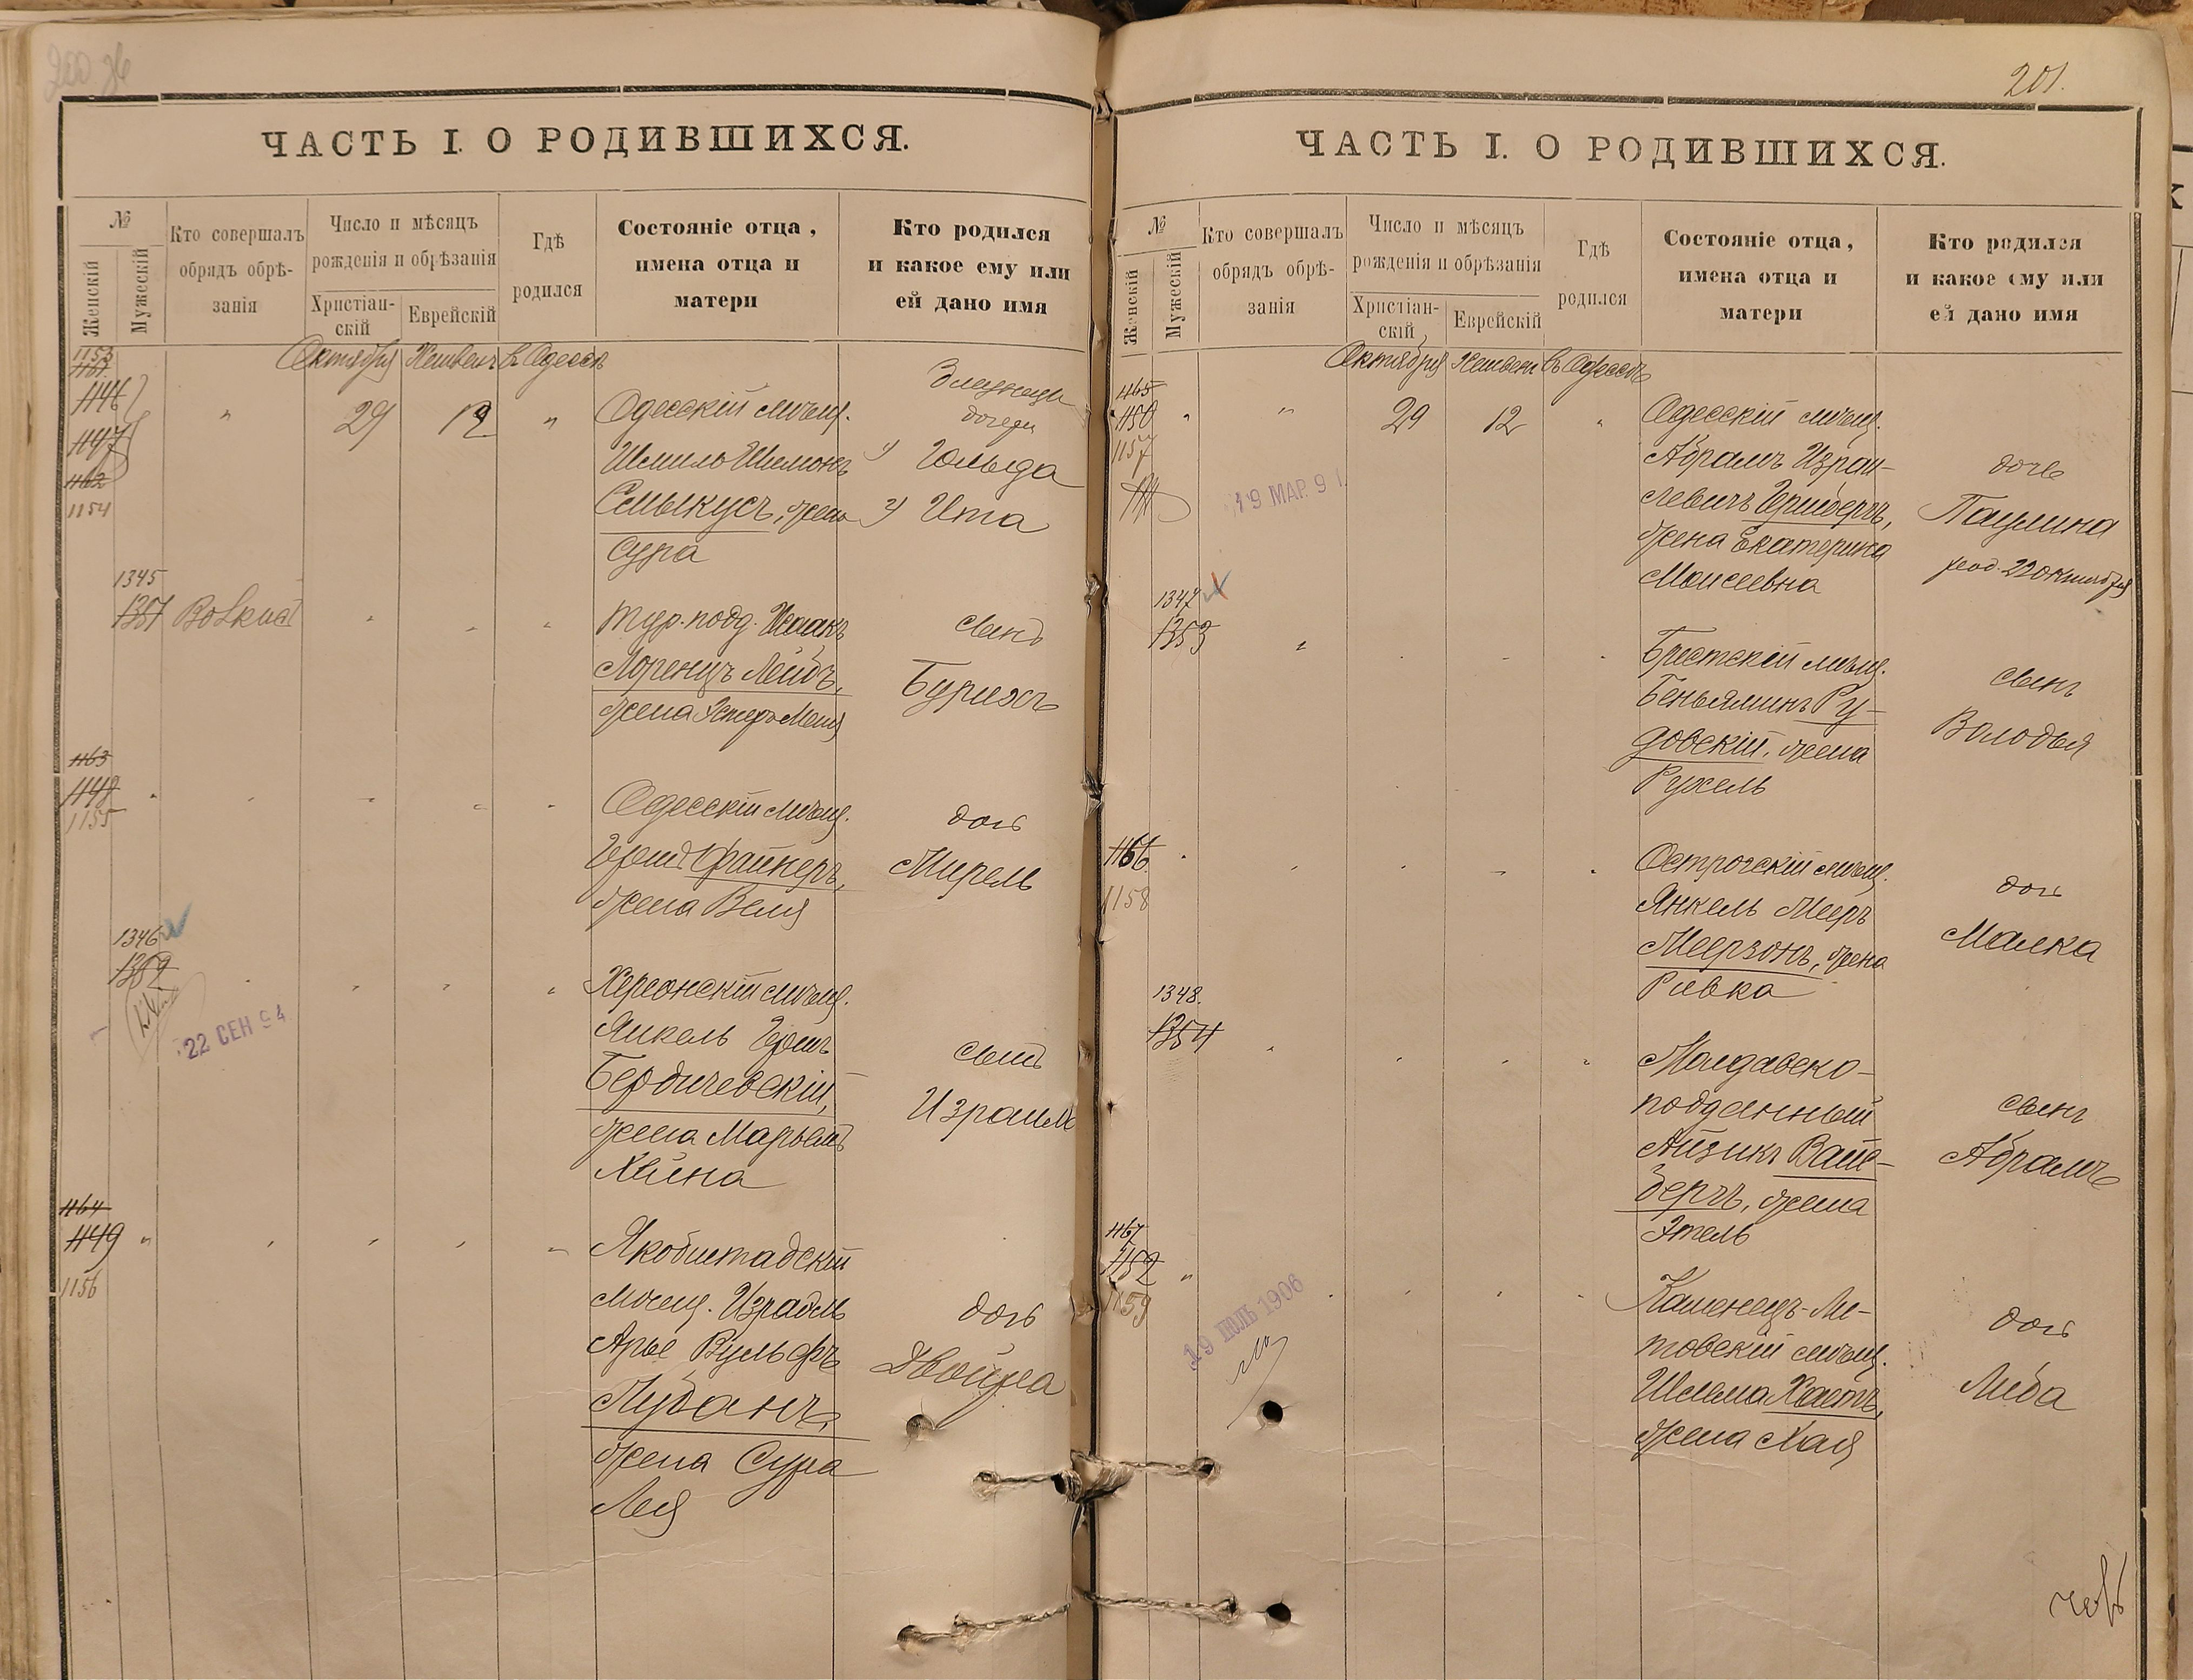 201.
ЧАСТЬ I. О РОДИВШИХСЯ.
№
Женскій
Мужескій
Кто совершалъ
обрядъ обрѣ-
занія
Число и мѣсяцъ
рожденія и обрѣзанія
Христіан-
скій
Еврейскій
Гдѣ
родился
Состояніе отца,
имена отца и
матери
Кто родился
и какое ему или
ей дано имя
Октября Хешвенъ въ Одессѣ
1153
1146
1147
1162
1154
" 29 12 "
Одесскій мѣщ.
Шмиль Шимонъ
Селькусъ, жена
Сура
Близнецы
дочери
1) Гольда
2) Ита
1345
1351
Тур. подд. Исаакъ
Лоренцъ Лейбъ,
жена Эстеръ Маня
сынъ
Бурихъ
1163
1148
1155
Одесскій мѣщ.
Гершъ Файнеръ,
жена Веля
дочь
Мирель
1346
1352
22 СЕН 94
Херсонскій мѣщ.
Янкель Гершъ
Бердичевскій,
жена Марьямъ
Хайна
сынъ
Израиль
1164
1149 "
1156
Якобштадскій
мѣщ. Израэль
Арье Вульфъ
Лубанъ,
жена Сура
Лея
дочь
Двойра
ЧАСТЬ I. О РОДИВШИХСЯ.
№
Женскій
Мужескій
Кто совершалъ
обрядъ обрѣ-
занія
Число и мѣсяцъ
рожденія и обрѣзанія
Христіан-
скій
Еврейскій
Гдѣ
родился
Состояніе отца,
имена отца и
матери
Кто родился
и какое ему или
ей дано имя
Октября Хешвенъ въ Одессѣ
1165
1150
1157
" 29 12 "
19 МАР. 91
Одесскій мѣщ.
Абрамъ Израи-
левичъ Гершбергъ,
жена Екатерина
Моисеевна
дочь
Паулина
род. 22 Октября
1347
1353
Брестскій мѣщ.
Беньяминъ Ру-
довскій, жена
Рухель
сынъ
Володья
1166
1158
Острогскій мѣщ.
Янкель Мееръ
Меерзонъ, жена
Ривка
дочь
Малка
1348.
1354
Молдавско-
подданный
Айзикъ Вайс-
бергъ, жена
Этель
сынъ
Абрамъ
1167
1152 "
1159
19 ІЮЛЬ 1906
Каменецъ-Ли-
товскій мѣщ.
Шлема Хаетъ,
жена Хая
дочь
Либа